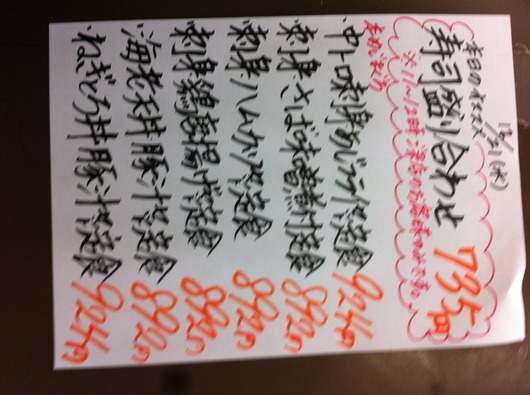 12/21(水)
本日のオススメ
寿司盛り合わせ 735円
※11〜12時ご来店のお客様のみです。
本まぐろ
・中トロ刺身あじフライ定食 924円
刺身さば味噌煮付定食 892円
刺身ハムカツ定食 892円
刺身鶏唐揚げ定食 892円
・海老天丼豚汁定食 892円
・ねぎとろ丼豚汁定食 924円